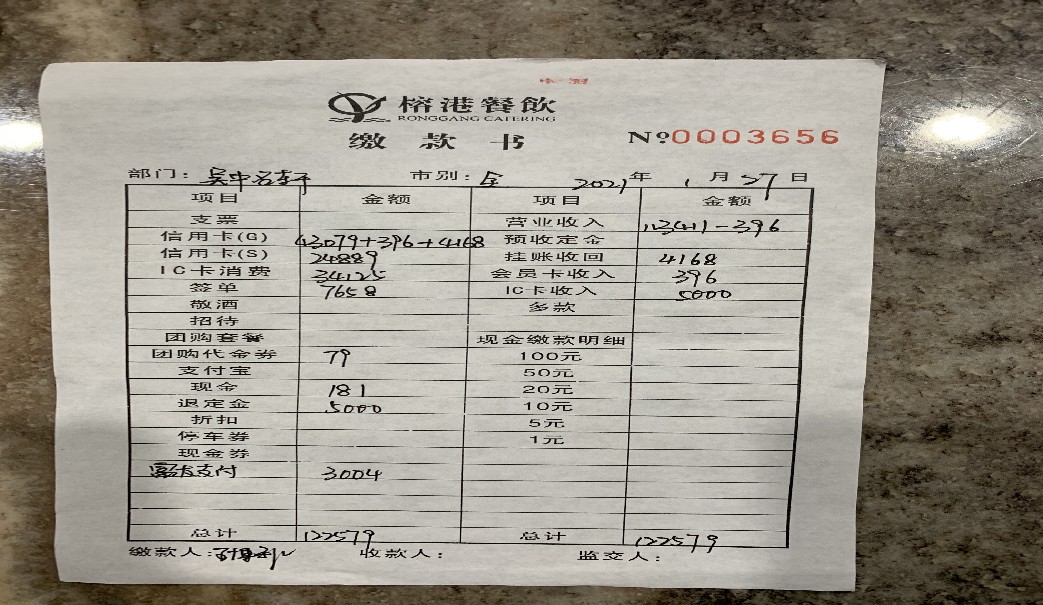 榕港餐飲
RONGGANG CATERING
缴款书 №0003656
部门: 吴中名 市别: 全 2021年1月27日
项目 金额 项目 金额
支票 营业收入 113411-396
信用卡(G) 43079+396+4168 预收定金
信用卡(S) 24889 挂账收回 4168
IC卡消费 34125 会员卡收入 396
签单 7658 IC卡收入 5000
敬酒 多款
招待
团购套餐 现金缴款明细
团购代金券 79 100元
支付宝 50元
现金 181 20元
退定金 5000 10元
折扣 5元
停车券 1元
现金券
支付 3004
总计 122579 总计 122579
缴款人: 收款人: 监交人: